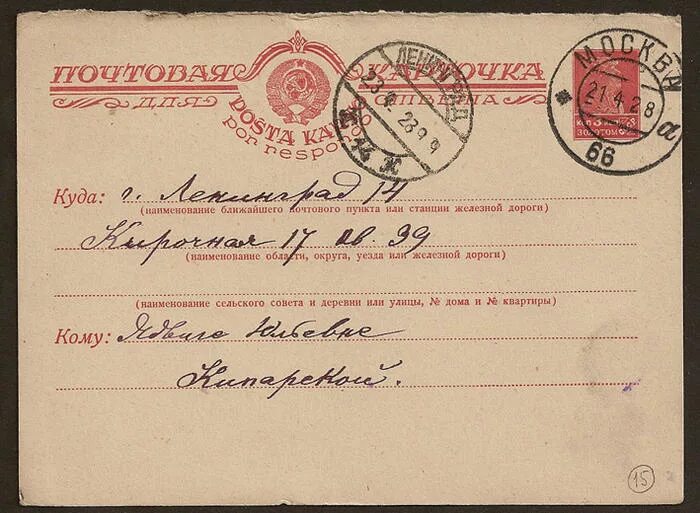 ПОЧТОВАЯ КАРТОЧКА
ДЛЯ ОТВЕТА
POŜTA KARTO
por respondo
ЛЕНИНГРАД
23.4.28
МОСКВА
21.4.28
66
а
ЗОЛОТОМ
Куда: г. Ленинград 14
(наименование ближайшего почтового пункта или станции железной дороги)
Кирочная 17 кв. 39
(наименование области, округа, уезда или железной дороги)
(наименование сельского совета и деревни или улицы, № дома и № квартиры)
Кому: Ядвиге
Кипарской.
15